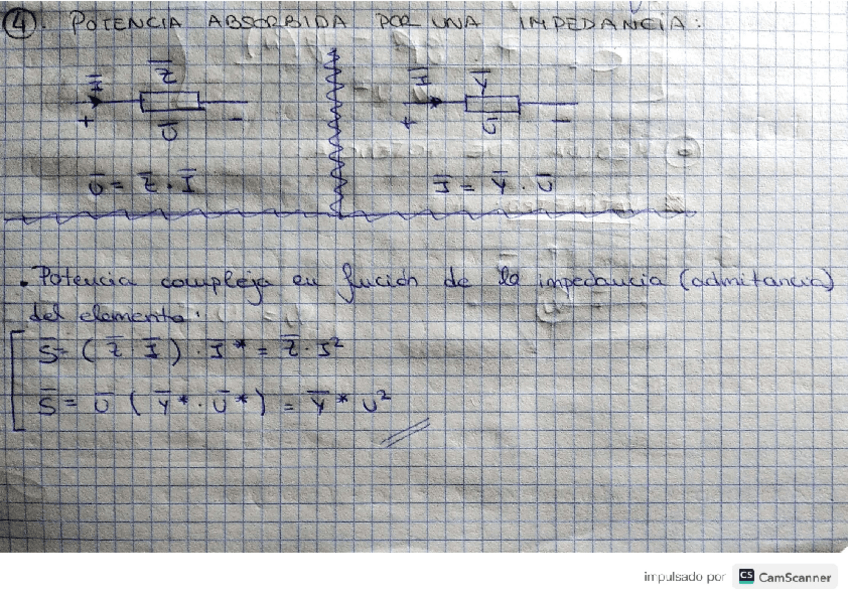 ④. POTENCIA ABSORBIDA POR UNA IMPEDANCIA:
I̅ Z̅
+ U̅ -
I̅ Y̅
+ U̅ -
U̅ = Z̅ · I̅
I̅ = Y̅ · U̅
• Potencia compleja en fución de la impedancia (admitancia)
del elemento:
S̅ = ( Z̅ · I̅ ) · I* = Z̅ · I²
S̅ = U̅ ( Y̅* · U̅* ) = Y̅* U²
impulsado por CS CamScanner